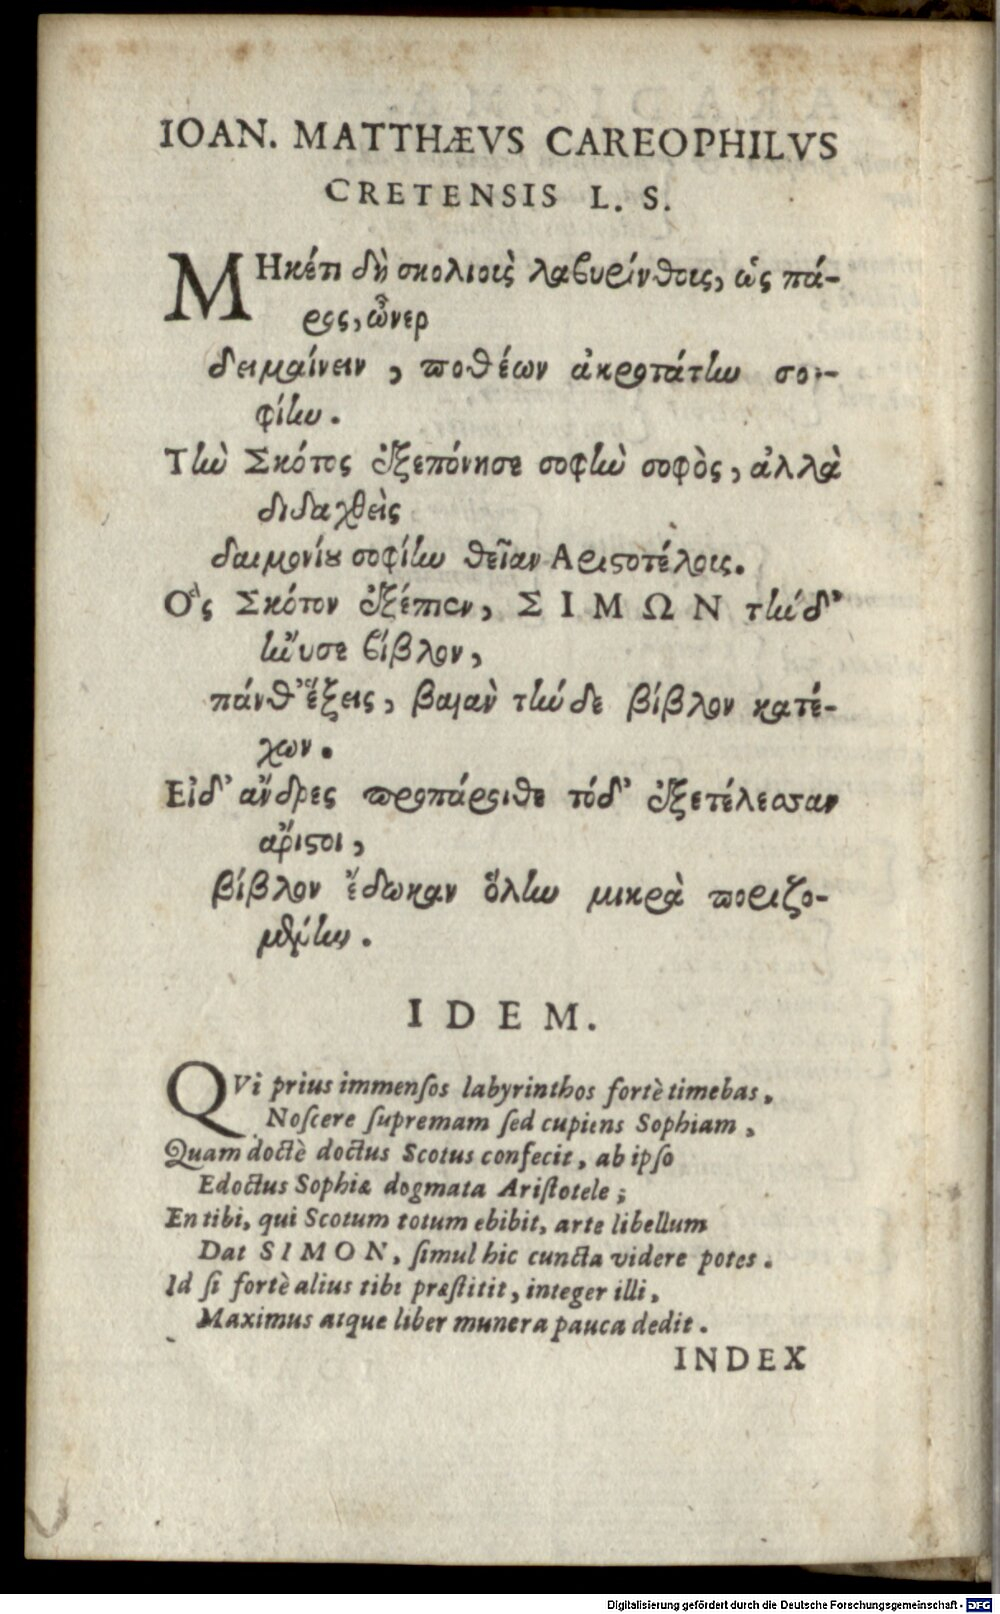 IOAN. MATTHÆVS CAREOPHILVS
CRETENSIS L. S.
ΜΗκέτι δὴ σκολιοιὶς λαβυρίνθοις, ὡς πά-
ρος, ὦνερ
δειμαίνειν, ποθέων ἀκροτάτην σο-
φίην.
Τὴν Σκότος ἐξεπόνησε σοφὴν σοφὸς, ἀλλὰ
διδαχθεὶς
δαιμονίου σοφίην θεῖαν Αριστοτέλοις.
Οʽ̀ς Σκότον ἐξέπιεν, ΣΙΜΩΝ τήνδ᾽
ἤνυσε βίβλον,
πάνθ᾽ ἕξεις, βαιαν̀ τήνδε βίβλον κατέ-
χων.
Εἰδ᾽ ἄνδρες προπάροιθε τόδ᾽ ἐξετέλεσαν
ἄριστοι,
βίβλον ἔδωκαν ὅλην μικρὰ ποριζο-
μένην.
IDEM.
QVi prius immensos labyrinthos fortè timebas,
Noscere supremam sed cupiens Sophiam,
Quam doctè doctus Scotus confecit, ab ipso
Edoctus Sophiæ dogmata Aristotele;
En tibi, qui Scotum totum ebibit, arte libellum
Dat SIMON, simul hic cuncta videre potes.
Id si fortè alius tibi præstitit, integer illi,
Maximus atque liber munera pauca dedit.
INDEX
Digitalisierung gefördert durch die Deutsche Forschungsgemeinschaft - DFG